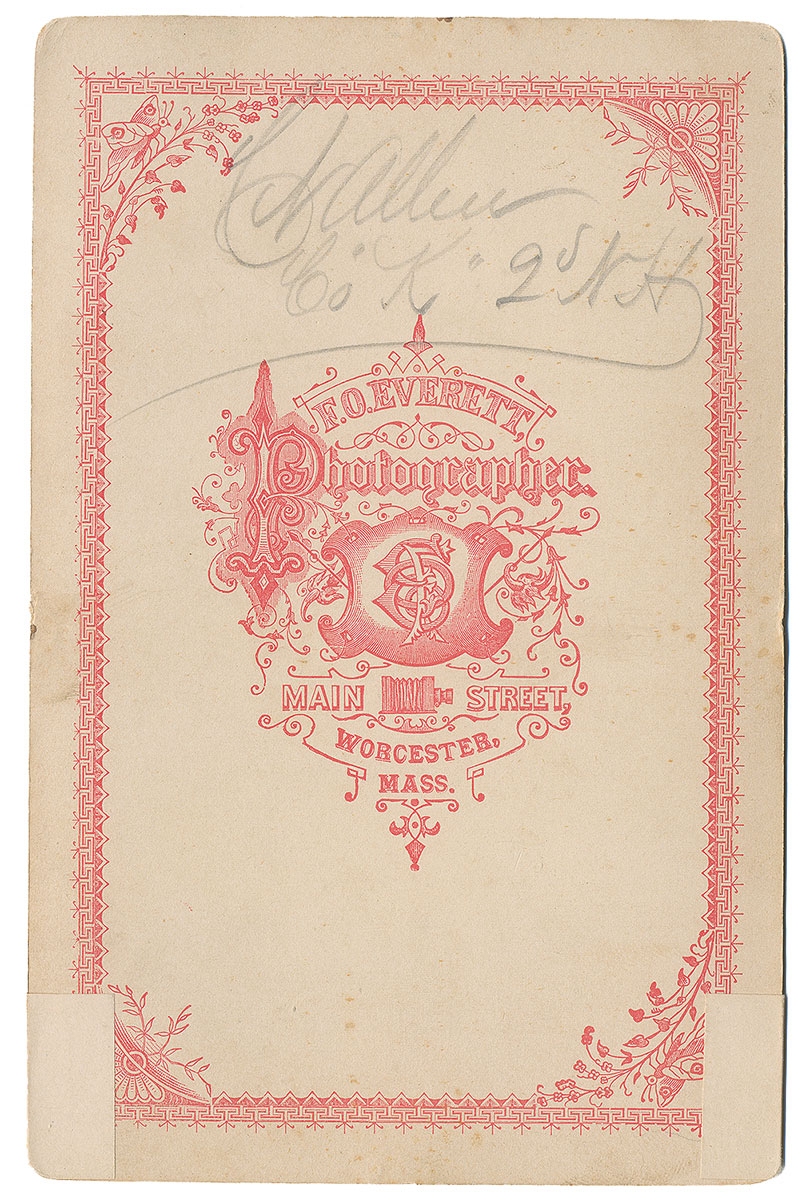 C N Allen
Co K " 2d N H
F. O. EVERETT,
Photographer.
MAIN STREET,
WORCESTER,
MASS.